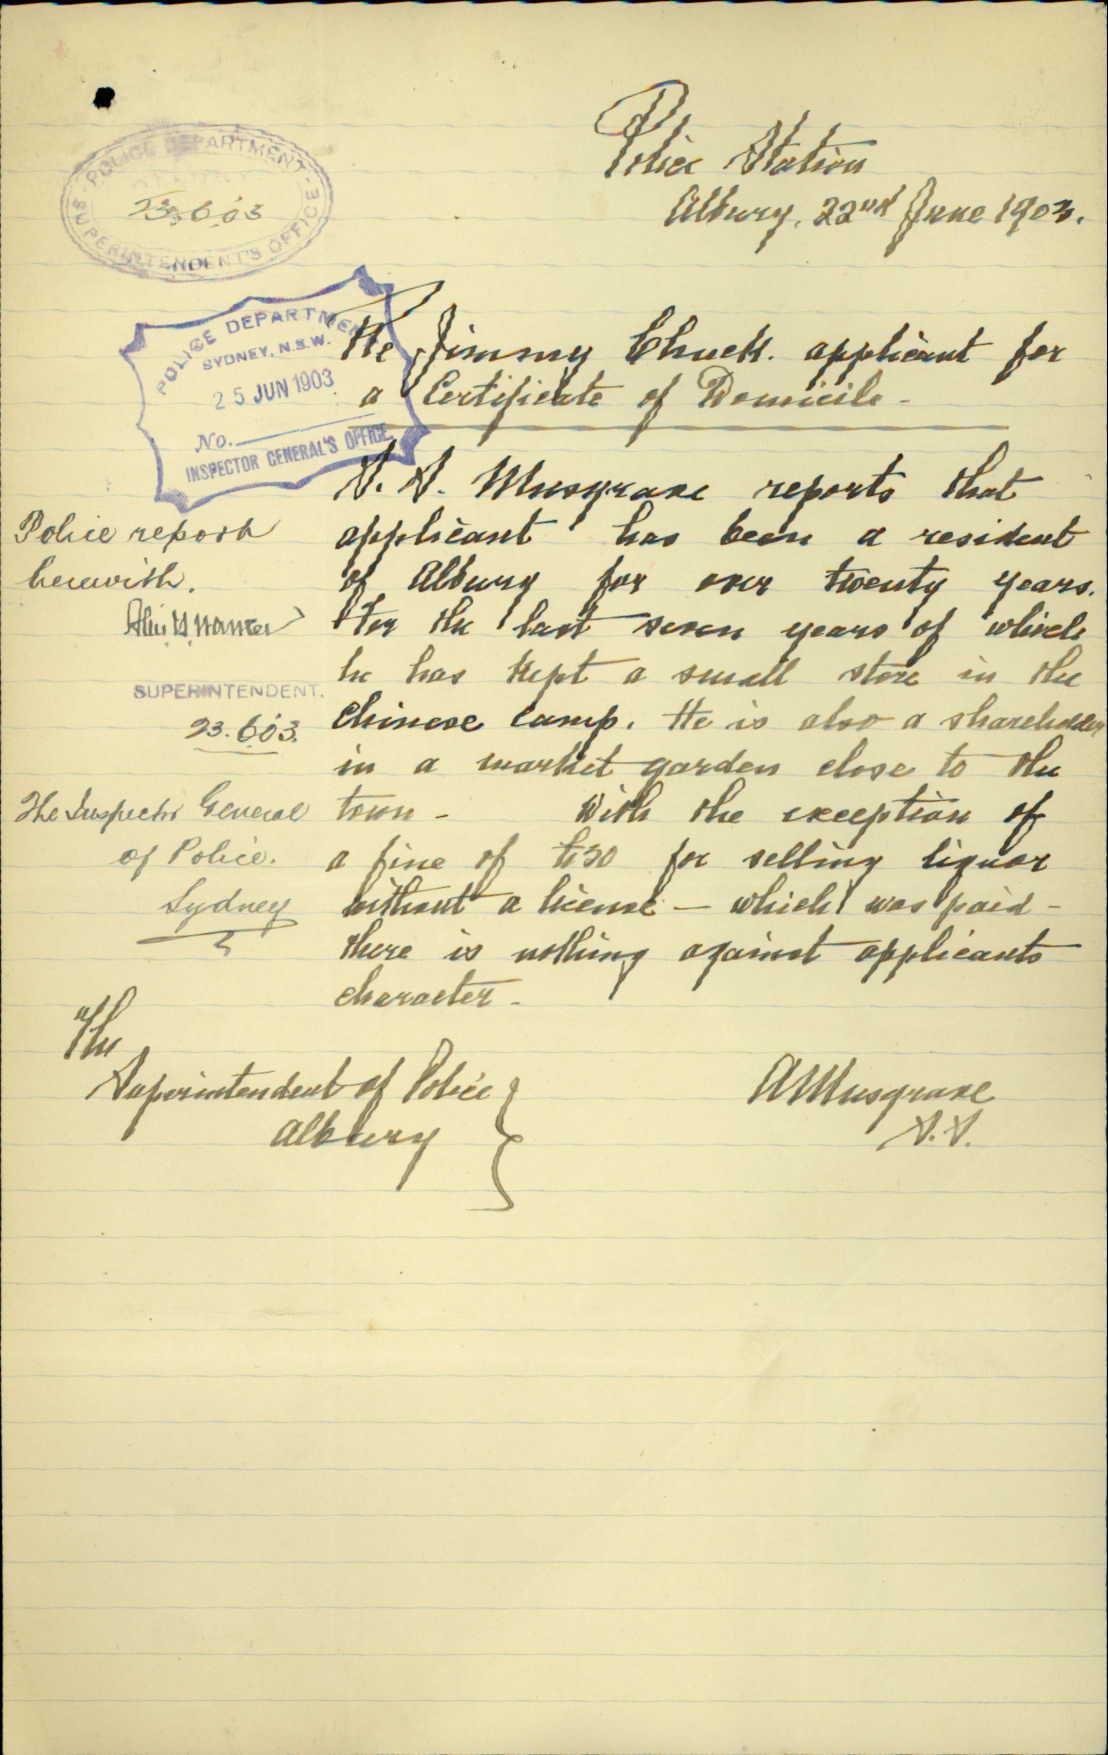 POLICE DEPARTMENT
23.6.03
SUPERINTENDENT'S OFFICE
Police Station
Albury, 22nd June 1903.
POLICE DEPARTMENT
SYDNEY, N.S.W.
25 JUN 1903
No.
INSPECTOR GENERAL'S OFFICE
Re Jimmy Chuck. applicant for
a Certificate of Domicile -
S. S. Musgrave reports that
applicant has been a resident
of Albury for over twenty years.
For the last seven years of which
he has kept a small store in the
Chinese Camp. He is also a shareholder
in a market garden close to the
town - With the exception of
a fine of £30 for selling liquor
without a license - which was paid -
there is nothing against applicants
character -
Police report
herewith.
SUPERINTENDENT.
23.6.03.
The Inspector General
of Police.
Sydney
The
Superintendent of Police
Albury
A Musgrave
S.S.